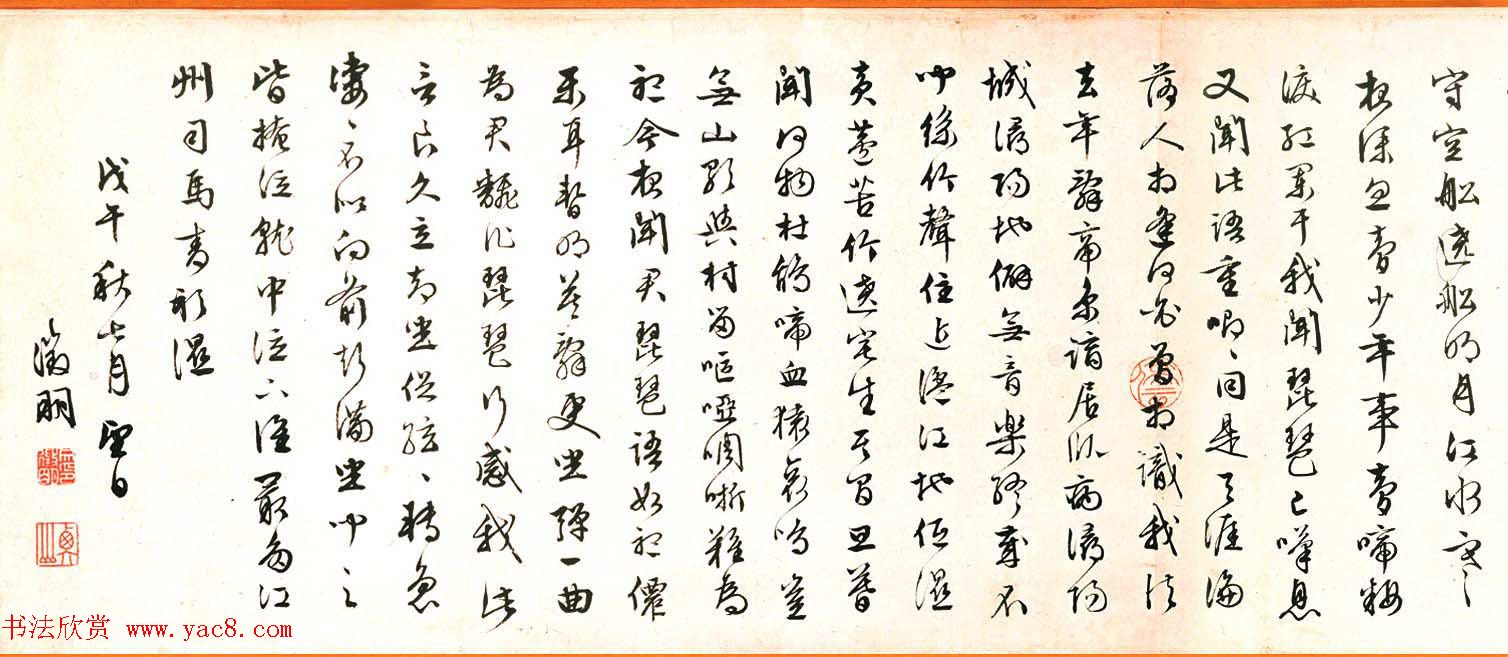 守空船遶船明月江水寒
夜深忽夢少年事夢啼妝
淚紅闌干我聞琵琶已嘆息
又聞此語重唧〻同是天涯淪
落人相逢何必曾相識我從
去年辭帝京謫居臥病潯陽
城潯陽地僻無音樂終歲不
聞絲竹聲住近湓江地低濕
黃蘆苦竹遶宅生其間旦暮
聞何物杜鵑啼血猿哀鳴豈
無山歌與村笛嘔啞啁哳難為
聽今夜聞君琵琶語如聽僊
樂耳暫明莫辭更坐彈一曲
為君翻作琵琶行感我此
言良久立却坐促絃〻轉急
淒〻不似向前聲滿坐聞之
皆掩泣就中泣下誰最多江
州司馬青衫濕
戊午秋七月望日
徵明
书法欣赏 www.yac8.com